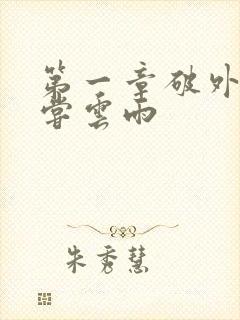 第一章破外
嘗雲雨
朱秀慧